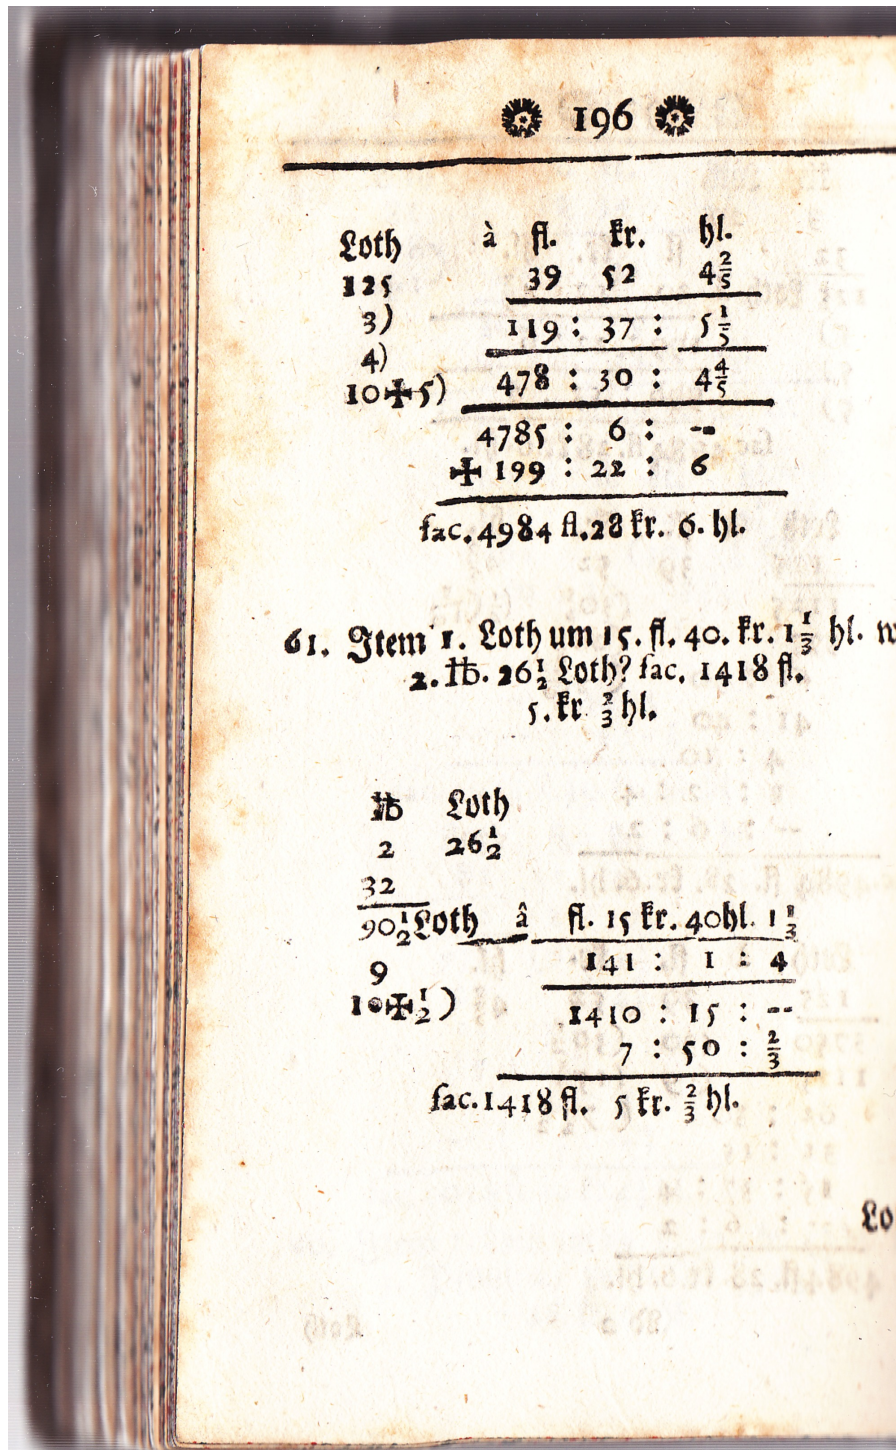 196
Loth à fl. kr. hl.
125 39 52 4 2/5
3) 119 : 37 : 5 1/5
4) 478 : 30 : 4 4/5
10✠5) 4785 : 6 : --
✠ 199 : 22 : 6
fac. 4984 fl. 28 kr. 6. hl.
61. Item 1. Loth um 15. fl. 40. kr. 1 1/3 hl.
2. ℔. 26 1/2 Loth? fac. 1418 fl.
5. kr 2/3 hl.
℔ Loth
2 26 1/2
32
90 1/2 Loth â fl. 15 kr. 40 hl. 1 1/3
9 141 : 1 : 4
10✠1/2) 1410 : 15 : --
7 : 50 : 2/3
fac. 1418 fl. 5 kr. 2/3 hl.
Lo